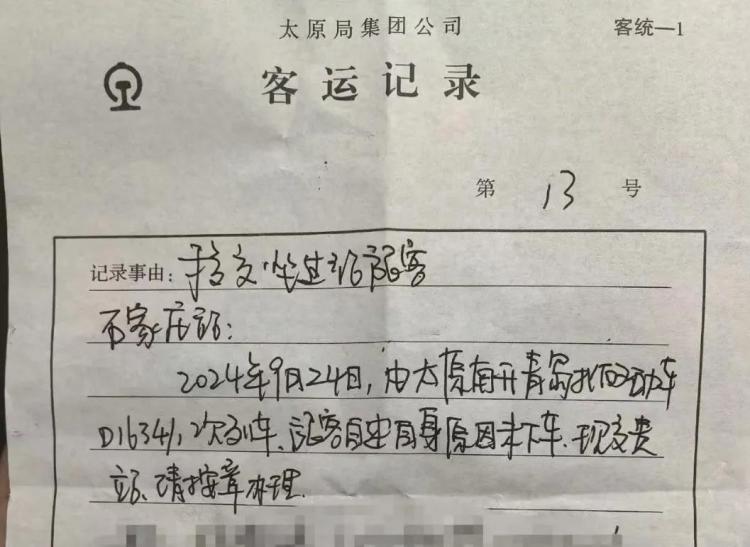 太原局集团公司 客统—1
客运记录
第 13 号
记录事由: 移交坐过站旅客
石家庄站:
2024年9月24日, 由太原南开青岛北的动车
D1634/1次列车、旅客自身原因未下车、现交贵
站、请按章办理.